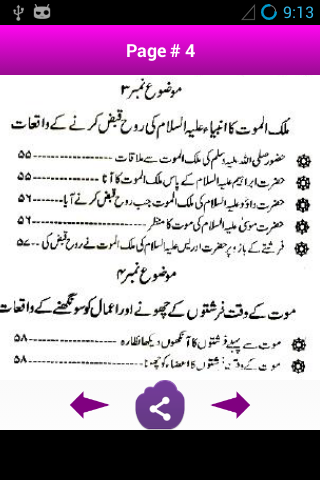 9:13
Page # 4
موضوع نمبر ۳
ملک الموت کا انبیاء علیہ السلام کی روح قبض کرنے کے واقعات
حضور صلی اللہ علیہ وسلم کی ملک الموت سے ملاقات ---------------- ۵۵
حضرت ابراہیم علیہ السلام کے پاس ملک الموت کا آنا ---------------- ۵۵
حضرت داؤد علیہ السلام کے ملک الموت جب روح قبض کرنے آیا ------- ۵۶
حضرت موسیٰ علیہ السلام کی موت کا منظر ------------------------- ۵۶
فرشتے کے بازو پر حضرت ادریس علیہ السلام کی ملک الموت نے روح قبض کی -- ۵۷
موضوع نمبر ۴
موت کے وقت فرشتوں کے چھونے اور اعمال کو سونگھنے کے واقعات
موت سے پہلے فرشتوں کا آنکھوں دیکھا نظارہ --------------------- ۵۸
موت کے وقت فرشتوں کا اعضاء کو چھونا ------------------------- ۵۸